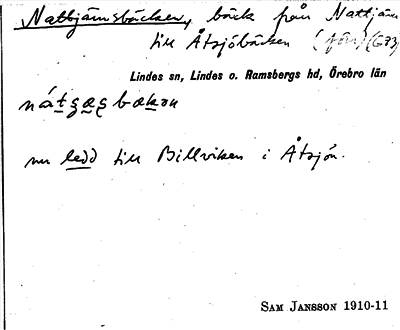 Nattjärnsbäcken, bäck från Nattjärn
till Åtsjöbäcken
Lindes sn, Lindes o. Ramsbergs hd, Örebro län
nu ledd till Billviken i Åtsjön.
SAM JANSSON 1910-11